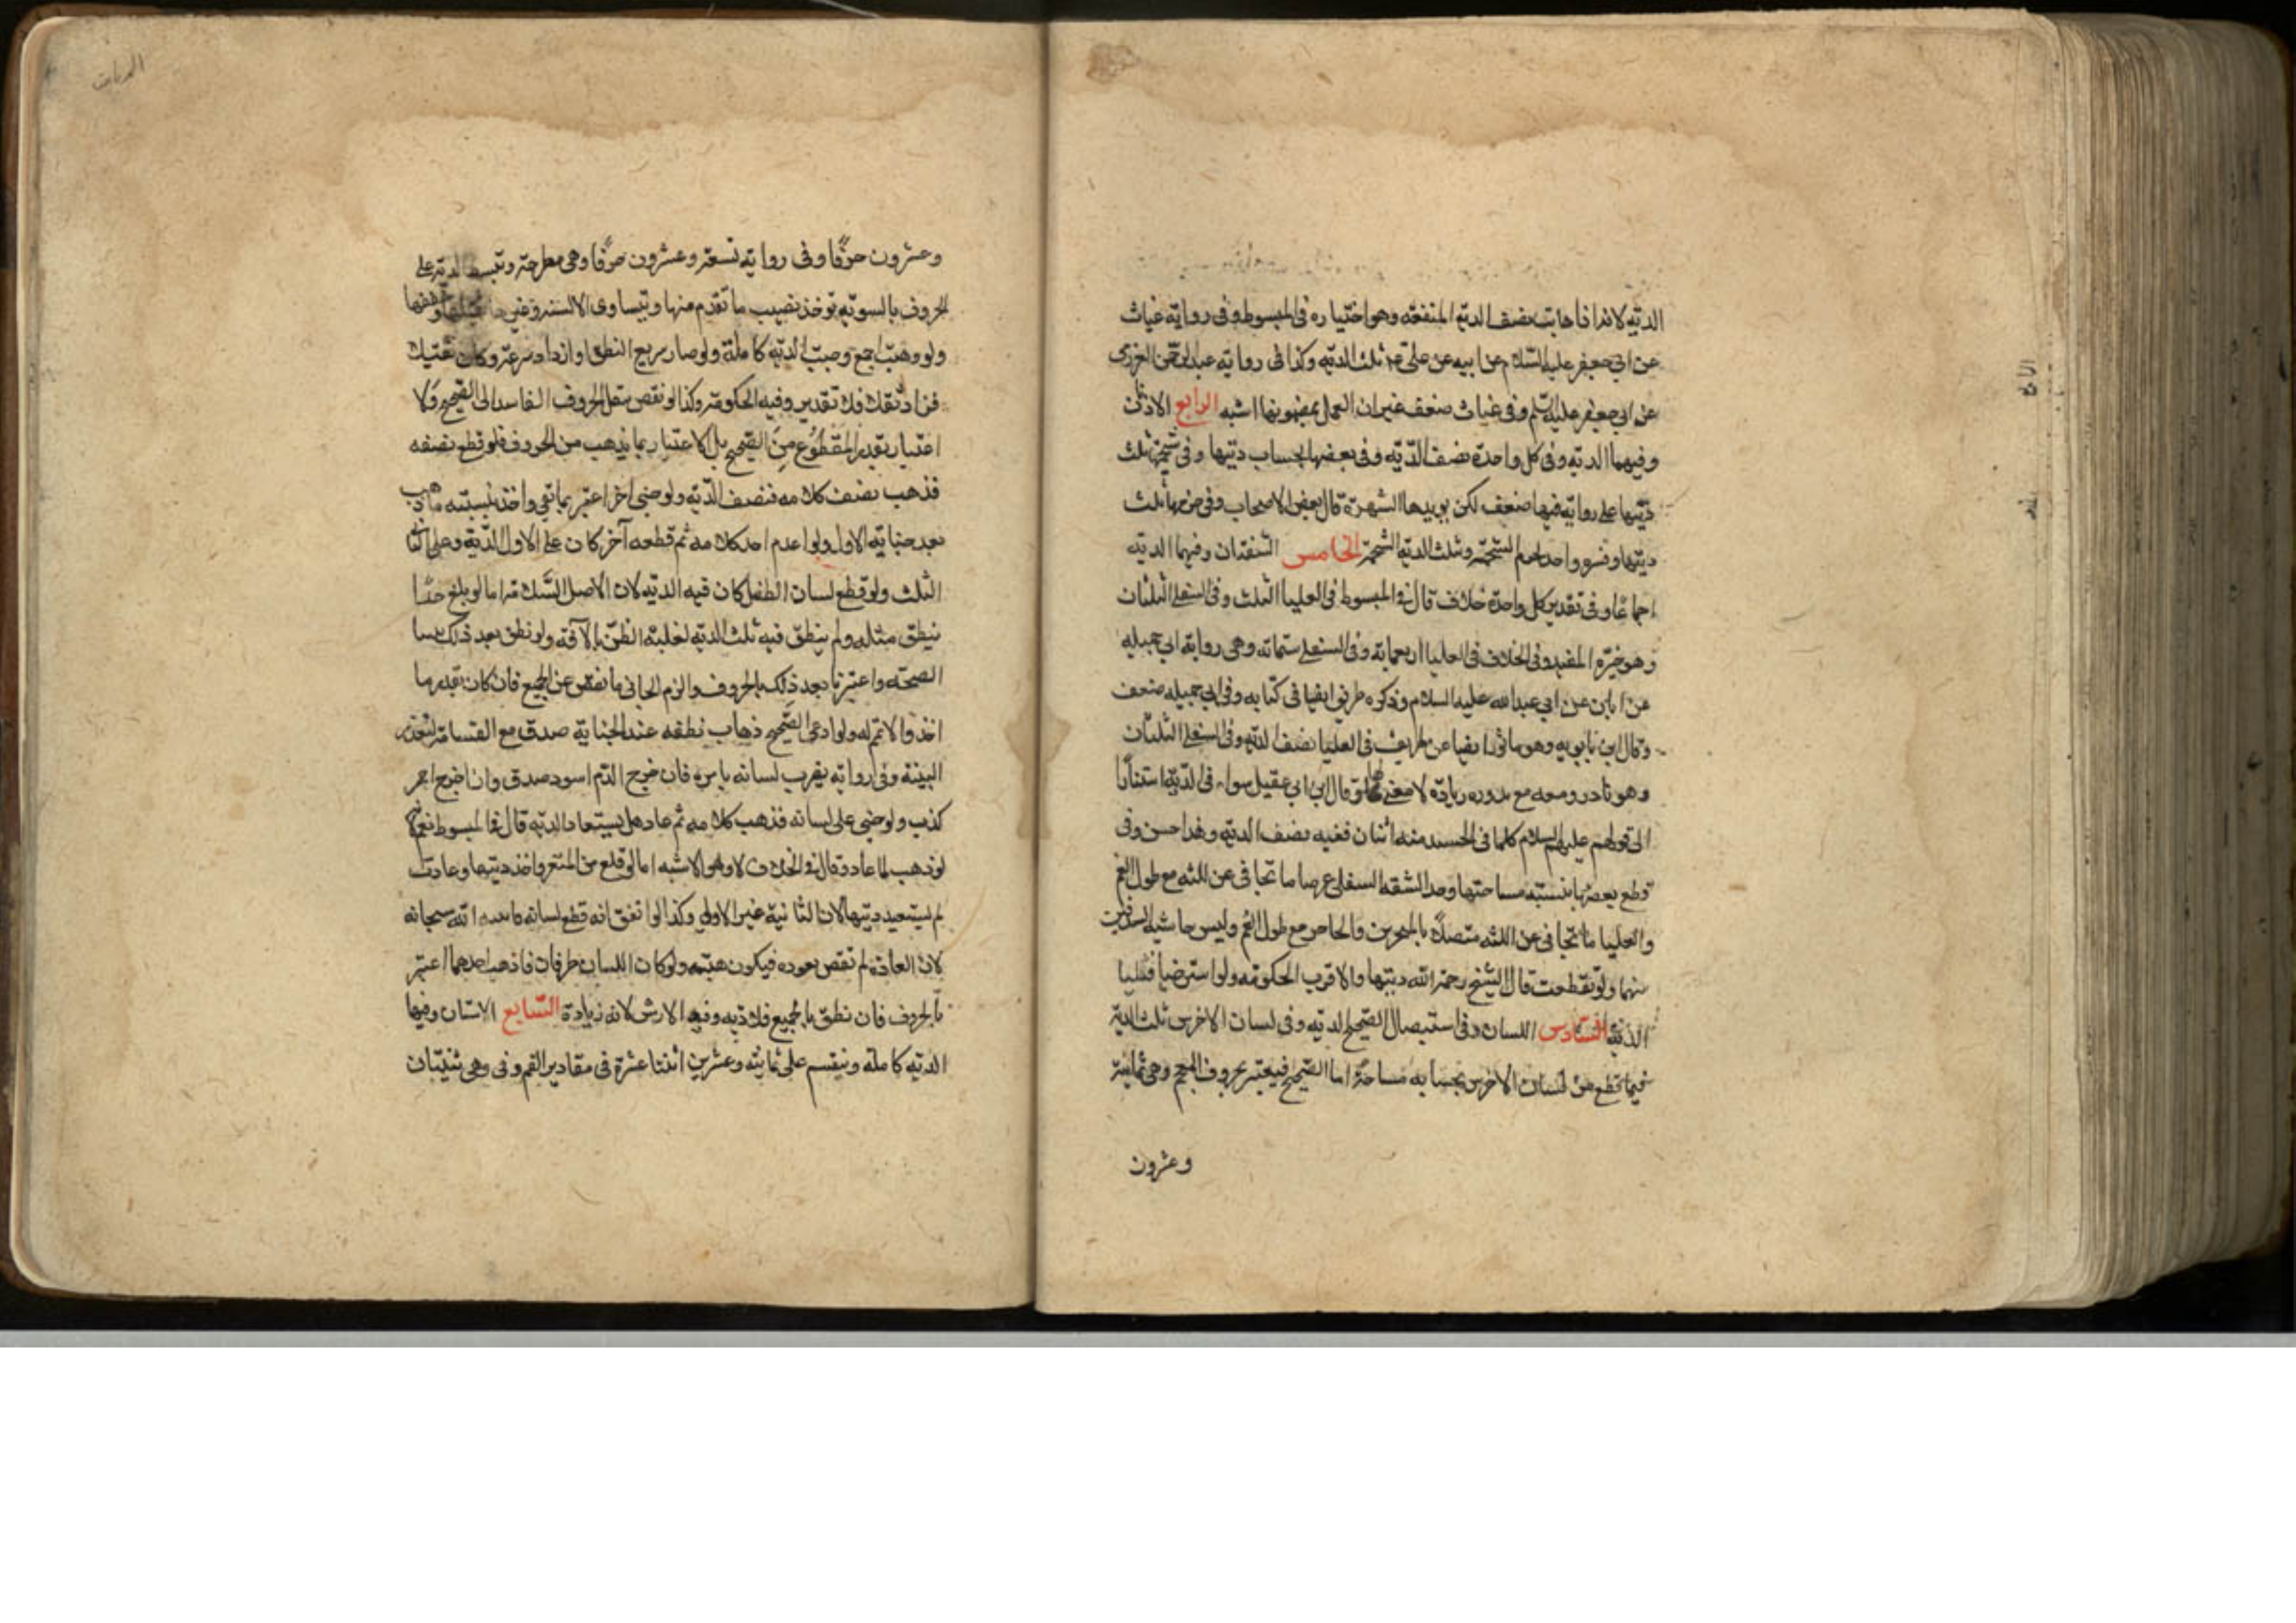 الدية لانها اذا هابت نصف الدية المنفعه وهو اختياره فى المبسوط وفى رواية غياث
عن ابى جعفر عليه السلام عن ابيه عن على ع ثلث الدية وكذا فى رواية عبد الرحمن العزرمى
عن ابى جعفر عليه السلم وفى غياث ضعف غير ان العمل بمضمونها اشبه الرابع الاذنان
وفيهما الدية وفى كل واحدة نصف الدية وفى بعضها بحساب ديتها وفى شحمتها ثلث
ديتها على رواية فيها ضعف لكن يويدها الشهرة قال بعض الاصحاب وفى خرمها ثلث
ديتها وفسره واحد بخرم الشحمة وثلث الدية الشحمة الخامس الشفتان وفيهما الدية
اجماعا وفى تقدير كل واحدة خلاف قال فى المبسوط فى العليا الثلث وفى السفلى الثلثان
وهو خيرة المفيد وفى الخلاف فى العليا اربعمائة وفى السفلى ستمائة وهى رواية ابى جميله
عن ابان عن ابى عبد الله عليه السلام وذكره ظريف ايضا فى كتابه وفى ابى جميله ضعف
وقال ابن بابويه وهو ماثور ايضا عن ظريف فى العليا نصف الدية وفى السفلى الثلثان
وهو نادر ومعه مع ندوره زيادة لا معنى لها وقال ابن ابى عقيل سواء فى الدية استنادا
الى قولهم عليهم السلام كلما فى الجسد منه اثنان ففيه نصف الدية وهذا حسن وفى
قطع بعضها بنسبة مساحتها وحد الشفه السفلى عرضا ما تجافى عن اللثه مع طول الفم
والعليا ما تجافى عن اللثه متصلا بالمنخرين والحاجز مع طول الفم وليس حاشية الشدقين
منهما ولو تقلصت قال الشيخ رحمه الله ديتها والاقرب الحكومه ولو استرخيا فثلثا
الدية السادس اللسان وفى استيصال الصحيح الدية وفى لسان الاخرس ثلث الدية
فيما قطع من لسان الاخرس بحسابه مساحة اما الصحيح فيعتبر بحروف المعجم وهى ثمانية
وعشرون
وعشرون حرفًا وفى رواية تسعة وعشرون حرفًا وهى مطرحة وتبسط الدية على
الحروف بالسوية يوخذ نصيب ما تقدم منها ويتساوى الالسنة وغيرها ثقيلها وخفيفها
ولو ذهبت اجمع وجبت الدية كاملة ولو صار سريع النطق او ازداد سرعة وكان ثقيلا
فزاد ثقلا فلا تقدير وفيه الحكومة وكذا لو نقص بنقل الحروف الفاسد الى الصحيح ولا
اعتبار بقدر المقطوع من الصحيح بل الاعتبار بما يذهب من الحروف فلو قطع نصفه
فذهب نصف كلامه فنصف الدية ولو جنى اخر اعتبر بما بقى واخذ بنسبته ما ذهب
بعد جناية الاول ولو اعدم احد كلامه ثم قطعه آخر كان على الاول الدية وعلى الثانى
الثلث ولو قطع لسان الطفل كان فيه الدية لان الاصل السلامة اما لو بلغ حدا
ينطق مثله ولم ينطق فيه ثلث الدية لغلبة الظن بالآفة ولو نطق بعد ذلك تبينا
الصحة واعتبرنا بعد ذلك بالحروف والزم الجانى ما نقص عن الجميع فان كان بقدر ما
اخذ والا تم له ولو ادعى الصحيح ذهاب نطقه عند الجناية صدق مع القسامة لتعذر
البينة وفى رواية يضرب لسانه بابرة فان خرج الدم اسود صدق وان خرج احمر
كذب ولو جنى على لسانه فذهب كلامه ثم عاد هل يستعاد الدية قال فى المبسوط نعم لانه
لو ذهب لما عاد وقال فى الخلاف لا وهو الاشبه اما لو قلع سن المثغر واخذ ديتها وعادت
لم يستعيد ديتها لان الثانية غير الاولى وكذا لو اتفق انه قطع لسانه فانبته الله سبحانه
لان العادة لم تقض بعوده فيكون هبة ولو كان اللسان طرفان فاذهب احدهما اعتبر
بالحروف فان نطق بالجميع فلا دية وفيه الارش لانه زيادة السابع الاسنان وفيها
الدية كاملة ويقسم على ثمانية وعشرين اثنتا عشرة فى مقاديم الفم وهى ثنيتان
الديات